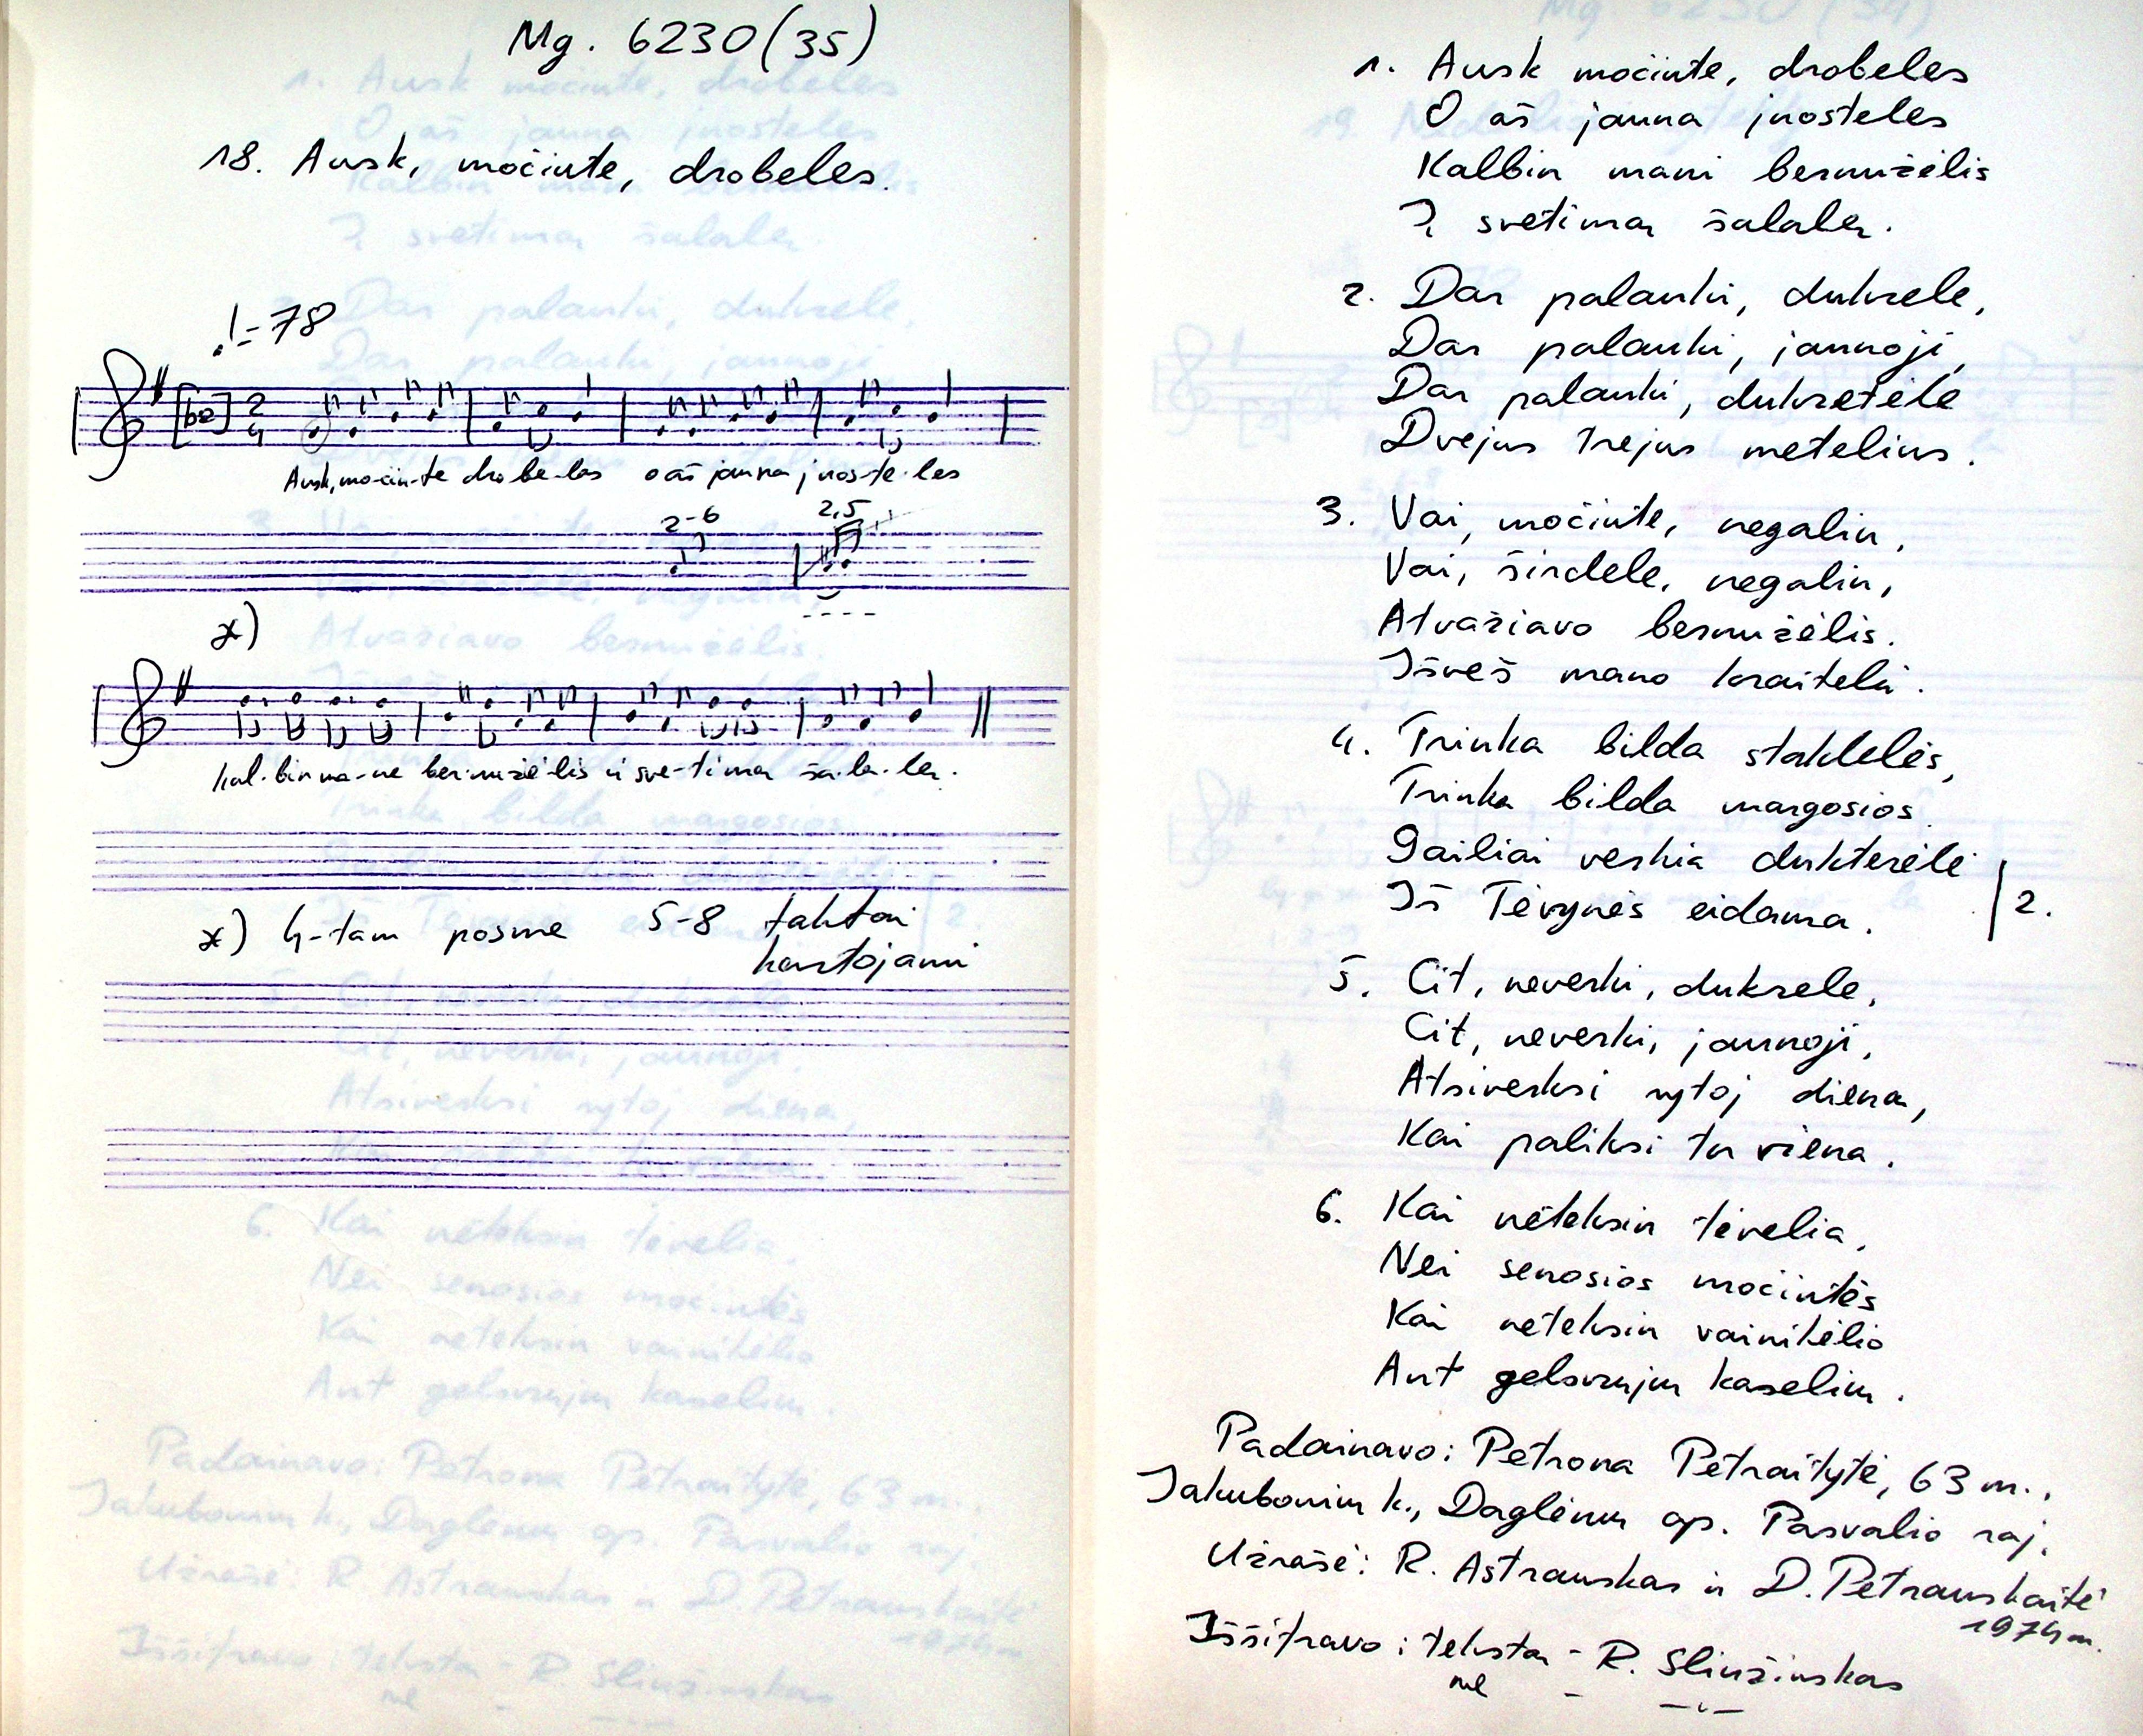 Mg. 6230 (35)
18. Ausk, močiute, drobeles.
♩ - 78
2
4
Ausk, mo-čiu-te dro-be-les o aš jauna juos-te-les
2-6 2,5
x)
kal-bin ma-ne ber-nu-žė-lis į sve-ti-mą ša-la-lę.
x) 4-tam posme 5-8 taktai
kartojami
1. Ausk močiute, drobeles
O aš jauna juosteles
Kalbin mani bernužėlis
Į svetimą šalalę.
2. Dar palauki, dukrele,
Dar palauki, jaunoji,
Dar palauki, dukretėle
Dvejus trejus metelius.
3. Vai, močiute, negaliu,
Vai, širdele, negaliu,
Atvažiavo bernužėlis.
Išveš mano kraitelį.
4. Trinka bilda staklelės,
Trinka bilda margosios
Gailiai verkia dukterėlė
Iš Tėvynės eidama. 2.
5. Cit, neverki, dukrele,
Cit, neverki, jaunoji,
Atsiverksi rytoj dieną,
Kai paliksi tu viena.
6. Kai neteksiu tėvelia,
Nei senosios močiutės
Kai neteksiu vainikėlio
Ant gelsvųjų kaselių.
Padainavo: Petrona Petraitytė, 63 m.,
Jakubonių k., Daglėnų ap. Pasvalio raj.
Užrašė: R. Astrauskas ir D. Petrauskaitė
1974 m.
Iššifravo: tekstą - R. Sliužinskas
mel - -"-